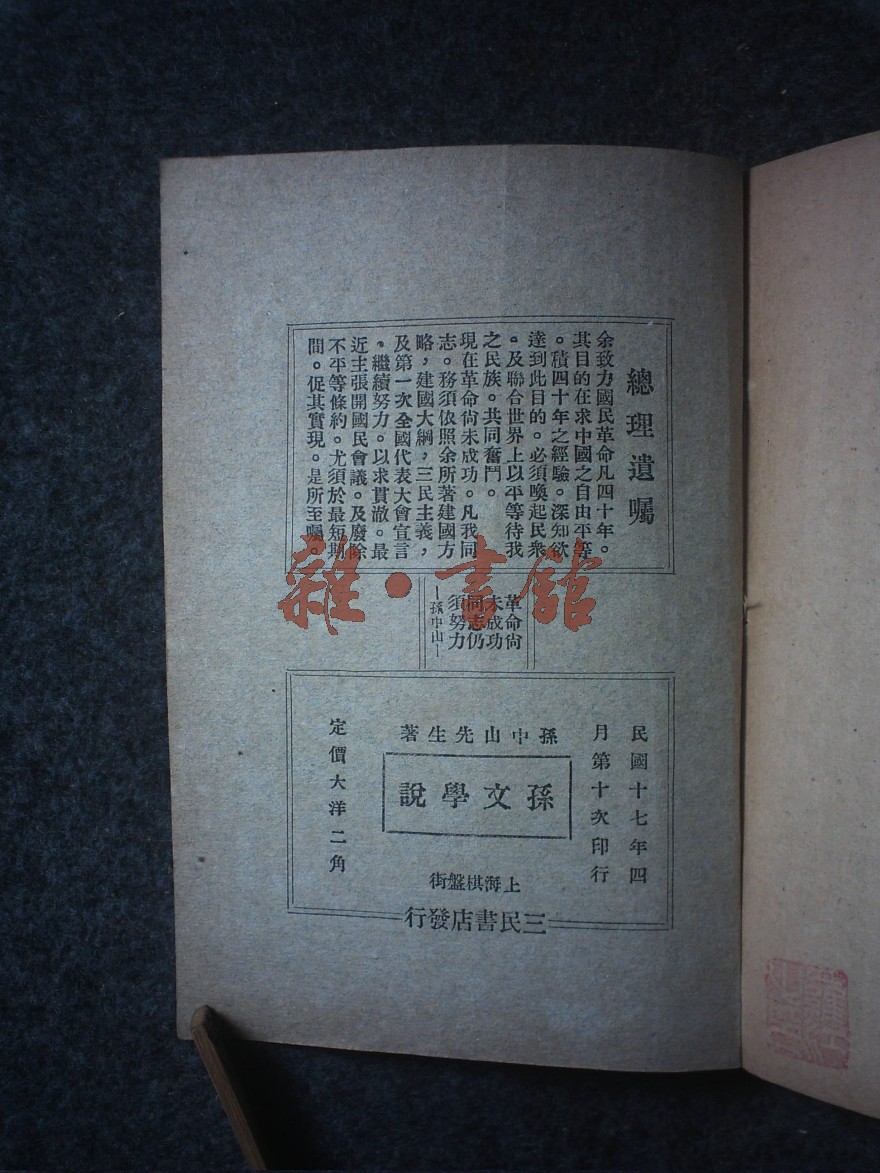 總理遺囑
余致力國民革命凡四十年。
其目的在求中國之自由平等
。積四十年之經驗。深知欲
達到此目的。必須喚起民衆
。及聯合世界上以平等待我
之民族。共同奮鬥。
現在革命尙未成功。凡我同
志。務須依照余所著建國方
略，建國大綱，三民主義，
及第一次全國代表大會宣言
。繼續努力。以求貫澈。最
近主張開國民會議。及廢除
不平等條約。尤須於最短期
間。促其實現。是所至囑。
革命尙
未成功
同志仍
須努力
—孫中山—
民國十七年四
月第十次印行
孫中山先生著
孫文學說
上海棋盤街
三民書店發行
定價大洋二角
雜·書館